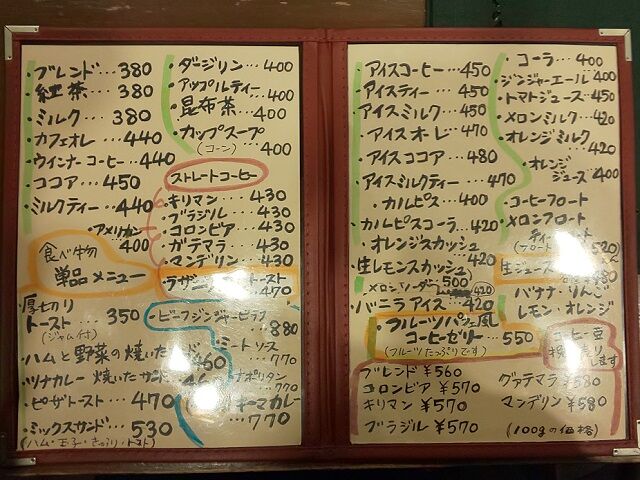 ・ブレンド…380
・紅茶…380
・ミルク…380
・カフェオレ…440
・ウインナーコーヒー…440
・ココア…450
・ミルクティー…440
・アメリカン…400
食べ物
単品メニュー
・厚切りトースト…350
(ジャム付)
・ハムと野菜の焼いた
・ツナカレー焼いたサンド
・ピザトースト…470
・ミックスサンド…530
(ハム・玉子・きゅうり・トマト)
・ダージリン…400
・アップルティー…400
・昆布茶…400
・カップスープ…400
(コーン)
ストレートコーヒー
・キリマン…430
・ブラジル…430
・コロンビア…430
・ガテマラ…430
・マンデリン…430
・ラザニアトースト
470
・ビーフジンジャーピラフ
880
・ミートソース
770
ナポリタン
…770
キーマカレー
…770
・アイスコーヒー…450
・アイスティー…450
・アイスミルク…450
・アイスオーレ…470
・アイスココア…480
・アイスミルクティー…470
・カルピス…400
・カルピスコーラ…420
・オレンジスカッシュ
・生レモンスカッシュ
・メロンソーダ…420
・バニラアイス…420
・フルーツパフェ風
コーヒーゼリー…550
(フルーツたっぷりです)
・コーラ…400
・ジンジャーエール…400
・トマトジュース…450
・メロンミルク…420
・オレンジミルク
420
・オレンジジュース…400
・コーヒーフロート
・メロンフロート
520
生ジュース
480
バナナ・りんご
レモン・オレンジ
コーヒー豆
挽売りします
ブレンド ¥560
コロンビア ¥570
キリマン ¥570
ブラジル ¥570
グァテマラ ¥580
マンデリン ¥580
(100gの価格)